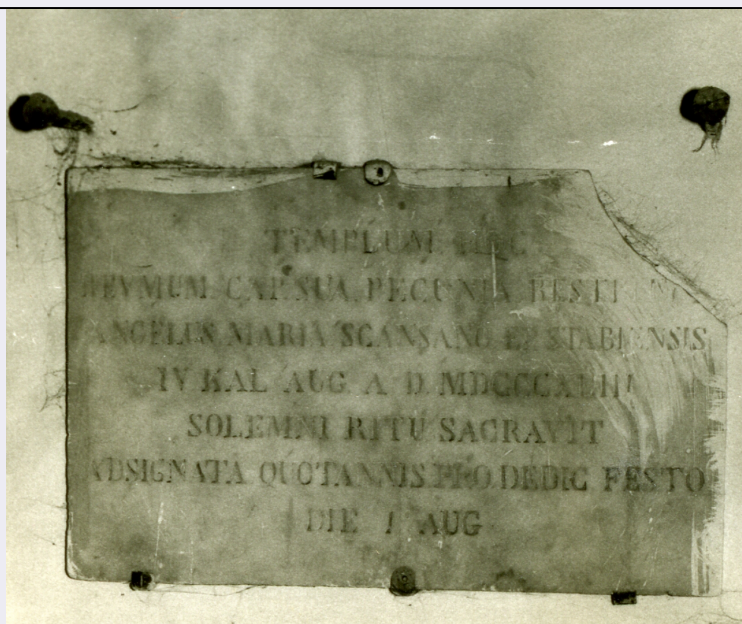 TEMPLUM HOC
CAP SUA PECUNIA
ANGELUS MARIA SCANSANO EP STABIENSIS
IV KAL AUG A D MDCCCXLIII
SOLEMNI RITU SACRAVIT
ADSIGNATA QUOTANNIS PRO DEDIC FESTO
DIE I AUG